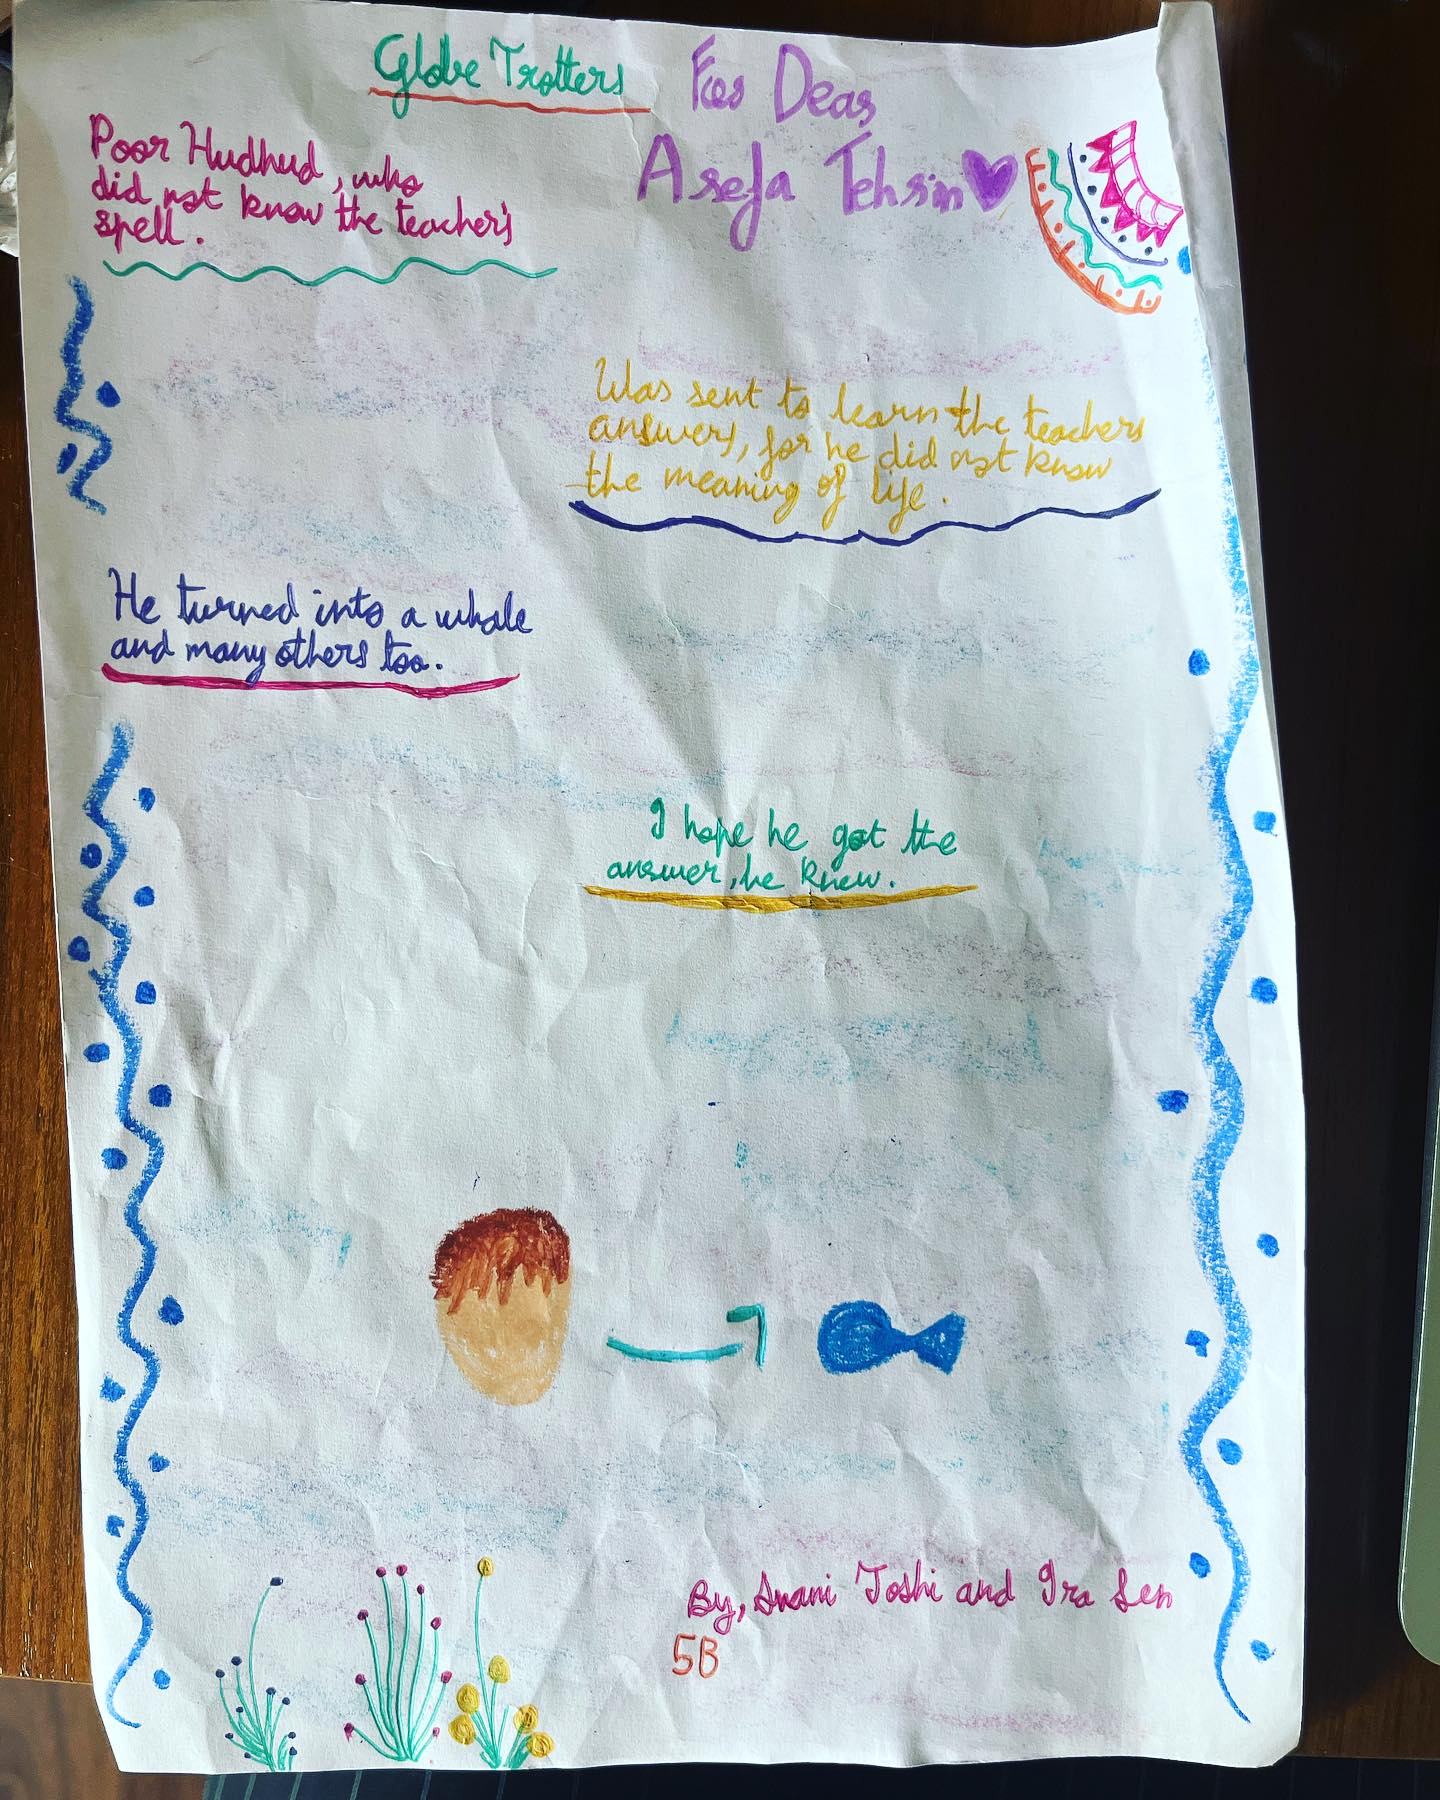 Globe Trotters
For Dear
Asefa Tehsin
Poor Hudhud, who
did not know the teacher's
spell.
Was sent to learn the teachers
answers, for he did not know
the meaning of life.
He turned into a whale
and many others too.
I hope he got the
answer, he knew.
By, Anani Joshi and Ira Sen
5B